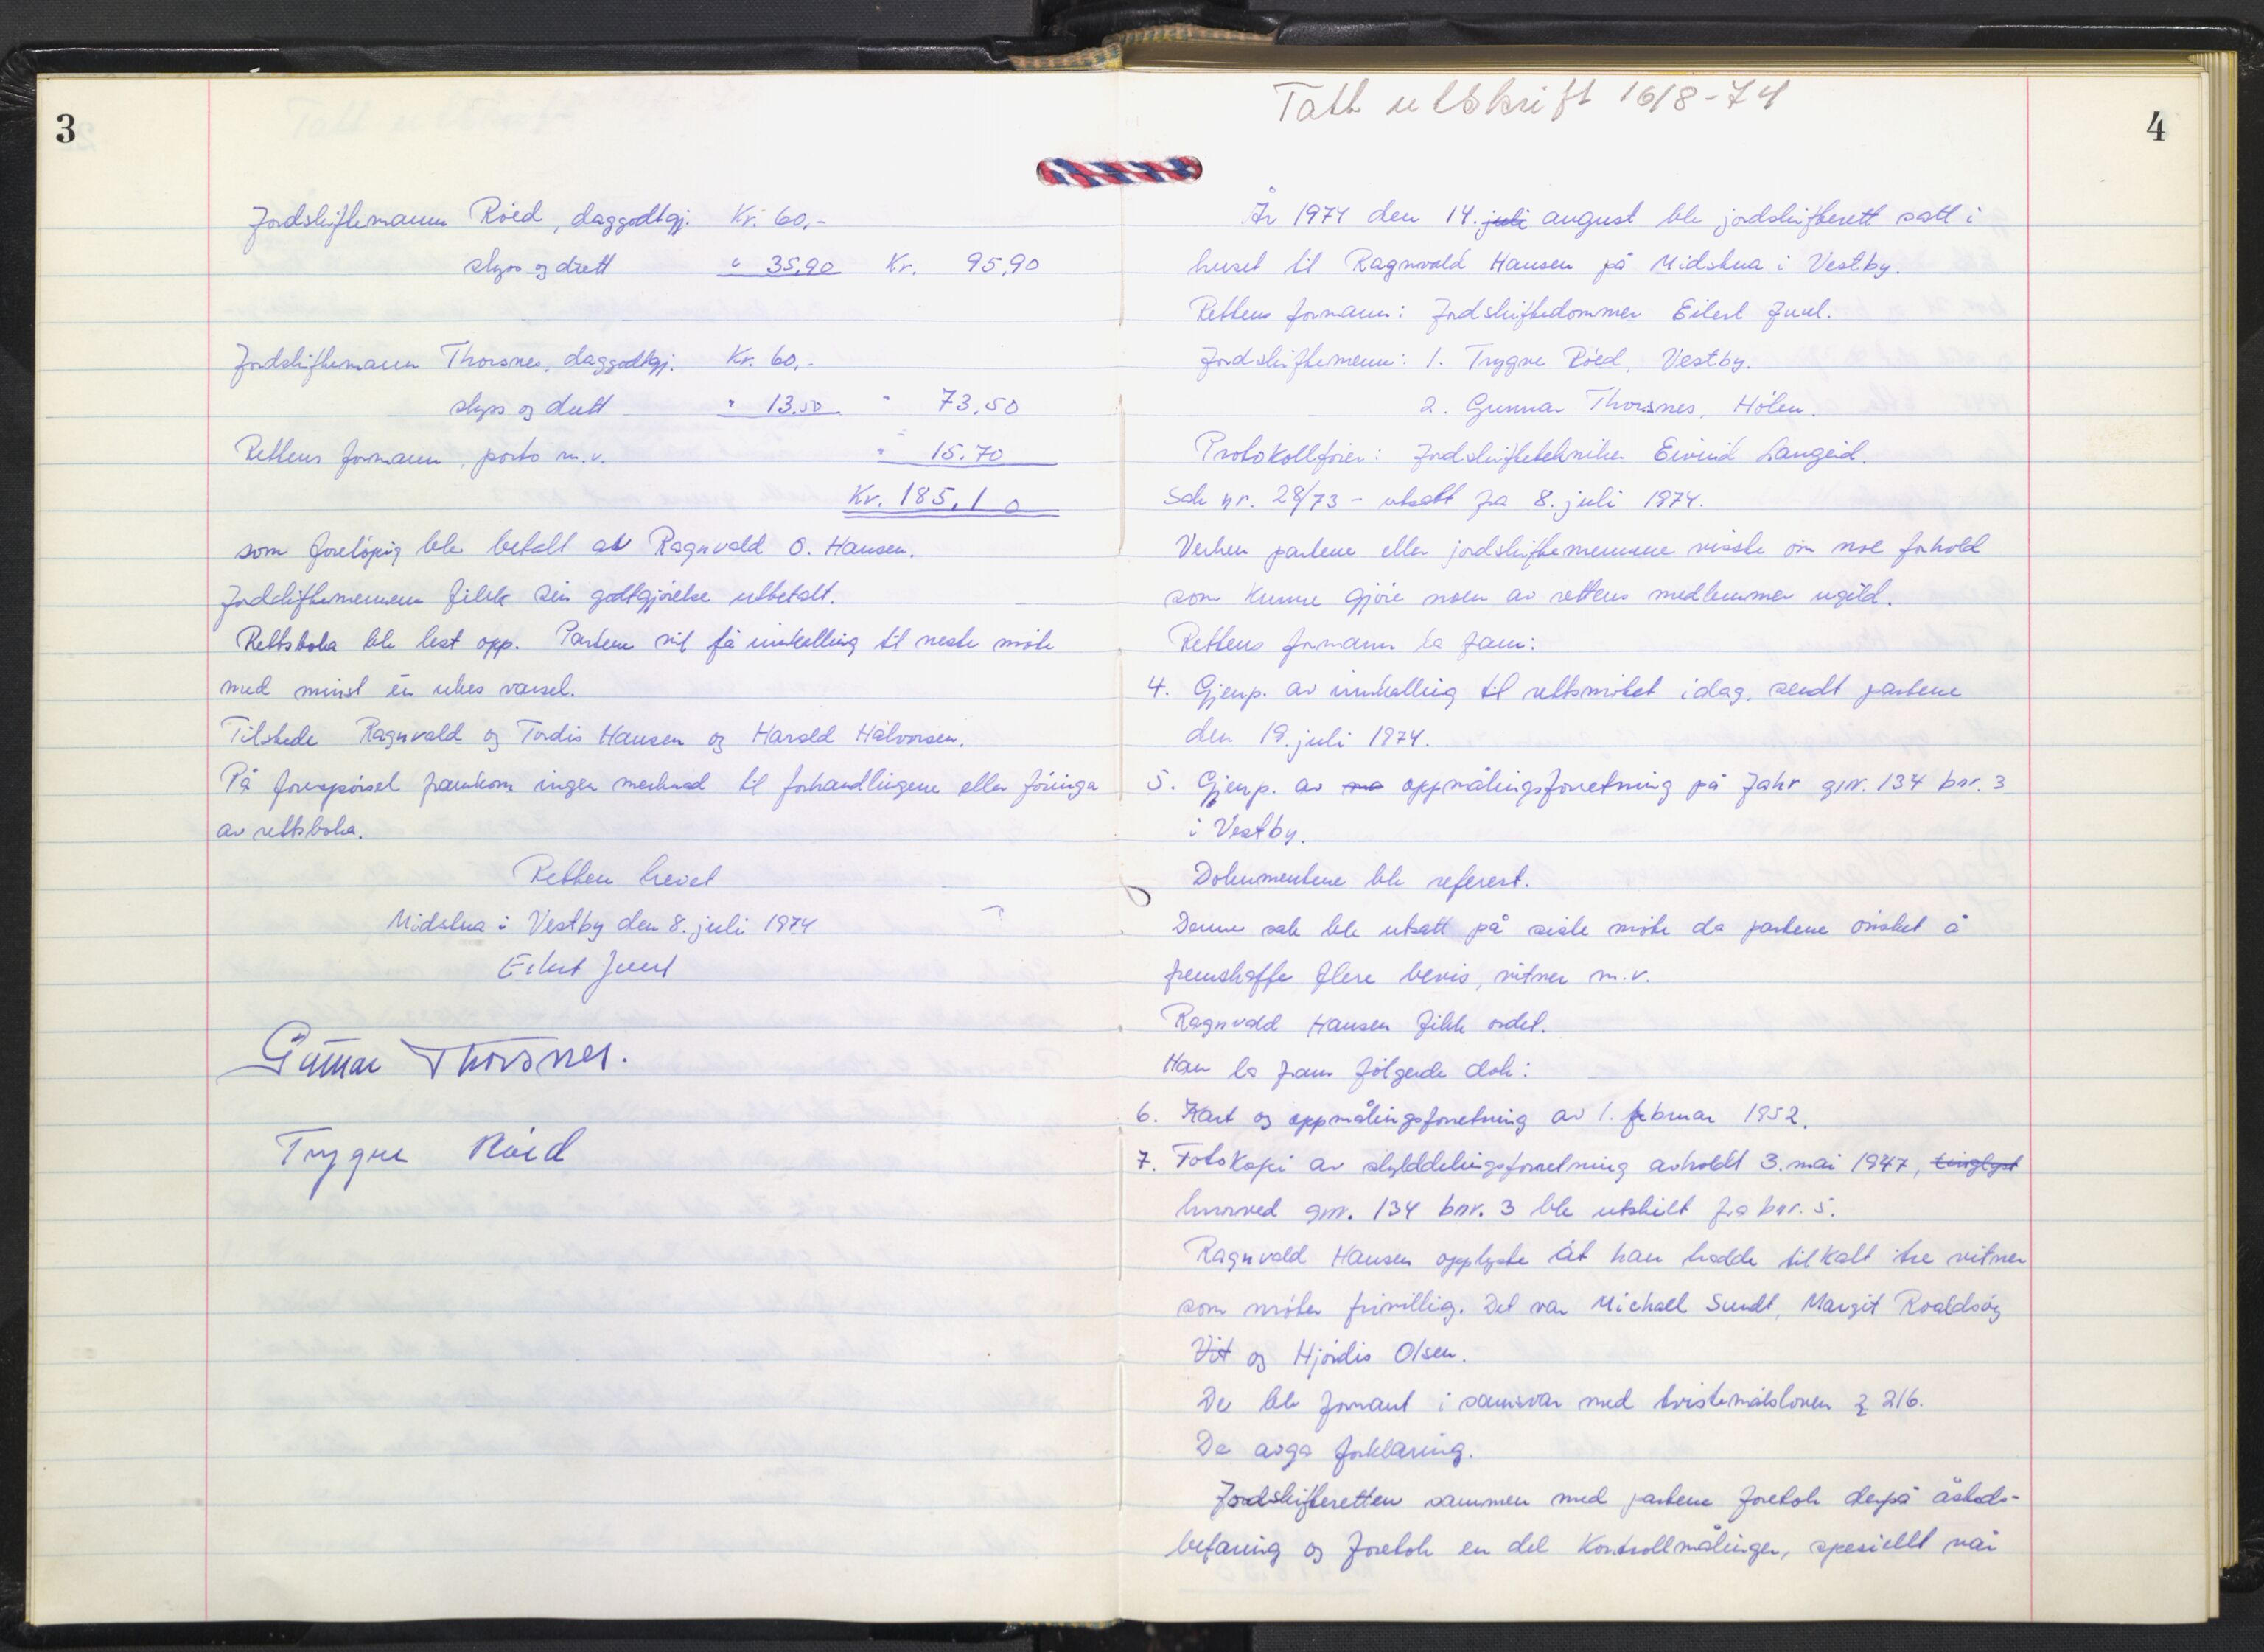 3
Jordskiftemann Röed, daggodtgj. Kr. 60,-
skyss og diett " 35,90 Kr. 95,90
Jordskiftemann Thorsnes, daggodtgj. Kr. 60,-
skyss og diett " 13.50 " 73,50
Rettens formann, porto m.v. " 15.70
Kr. 185,10
som foreløpig ble betalt av Ragnvald O. Hansen.
Jordskiftemennene fikk sin godtgjørelse utbetalt.
Rettsboka ble lest opp. Partene vil få innkalling til neste møte
med minst én ukes varsel.
Tilstede Ragnvald og Tordis Hansen og Harald Halvorsen.
På forespørsel framkom ingen merknad til forhandlingene eller føringa
av rettsboka.
Retten hevet
Midstua i Vestby den 8. juli 1974
Eilert Juul
Gunnar Thorsnes.
Trygve Röed
Tatt utskrift 16/8-74
4
År 1974 den 14. juli august ble jordskifterett satt i
huset til Ragnvald Hansen på Midstua i Vestby.
Rettens formann: Jordskiftedommer Eilert Juul.
Jordskiftemenn: 1. Trygve Röed, Vestby.
2. Gunnar Thorsnes, Hölen.
Protokollfører: Jordskiftetekniker Eivind Langeid.
Sak nr. 28/73 - utsatt fra 8. juli 1974.
Verken partene eller jordskiftemennene visste om noe forhold
som kunne gjøre noen av rettens medlemmer ugild.
Rettens formann la fram:
4. Gjenp. av innkalling til rettsmøtet idag, sendt partene
den 19. juli 1974.
5. Gjenp. av oppmålingsforretning på Jahr gnr. 134 bnr. 3
i Vestby.
Dokumentene ble referert.
Denne sak ble utsatt på siste møte da partene ønsket å
fremskaffe flere bevis, vitner m.v.
Ragnvald Hansen fikk ordet.
Han la fram følgende dok:
6. Kart og oppmålingsforretning av 1. februar 1952.
7. Fotokopi av skylddelingsforretning avholdt 3. mai 1947, tinglyst
hvorved gnr. 134 bnr. 3 ble utskilt fra bnr. 5.
Ragnvald Hansen opplyste at han hadde tilkalt tre vitner
som møter frivillig. Det var Michael Sundt, Margit Roaldsøy
Vit og Hjördis Olsen.
De ble formant i samsvar med tvistemålsloven § 216.
De avga forklaring.
Jordskifteretten sammen med partene foretok derpå åsteds-
befaring og foretok en del kontrollmålinger, spesiellt når